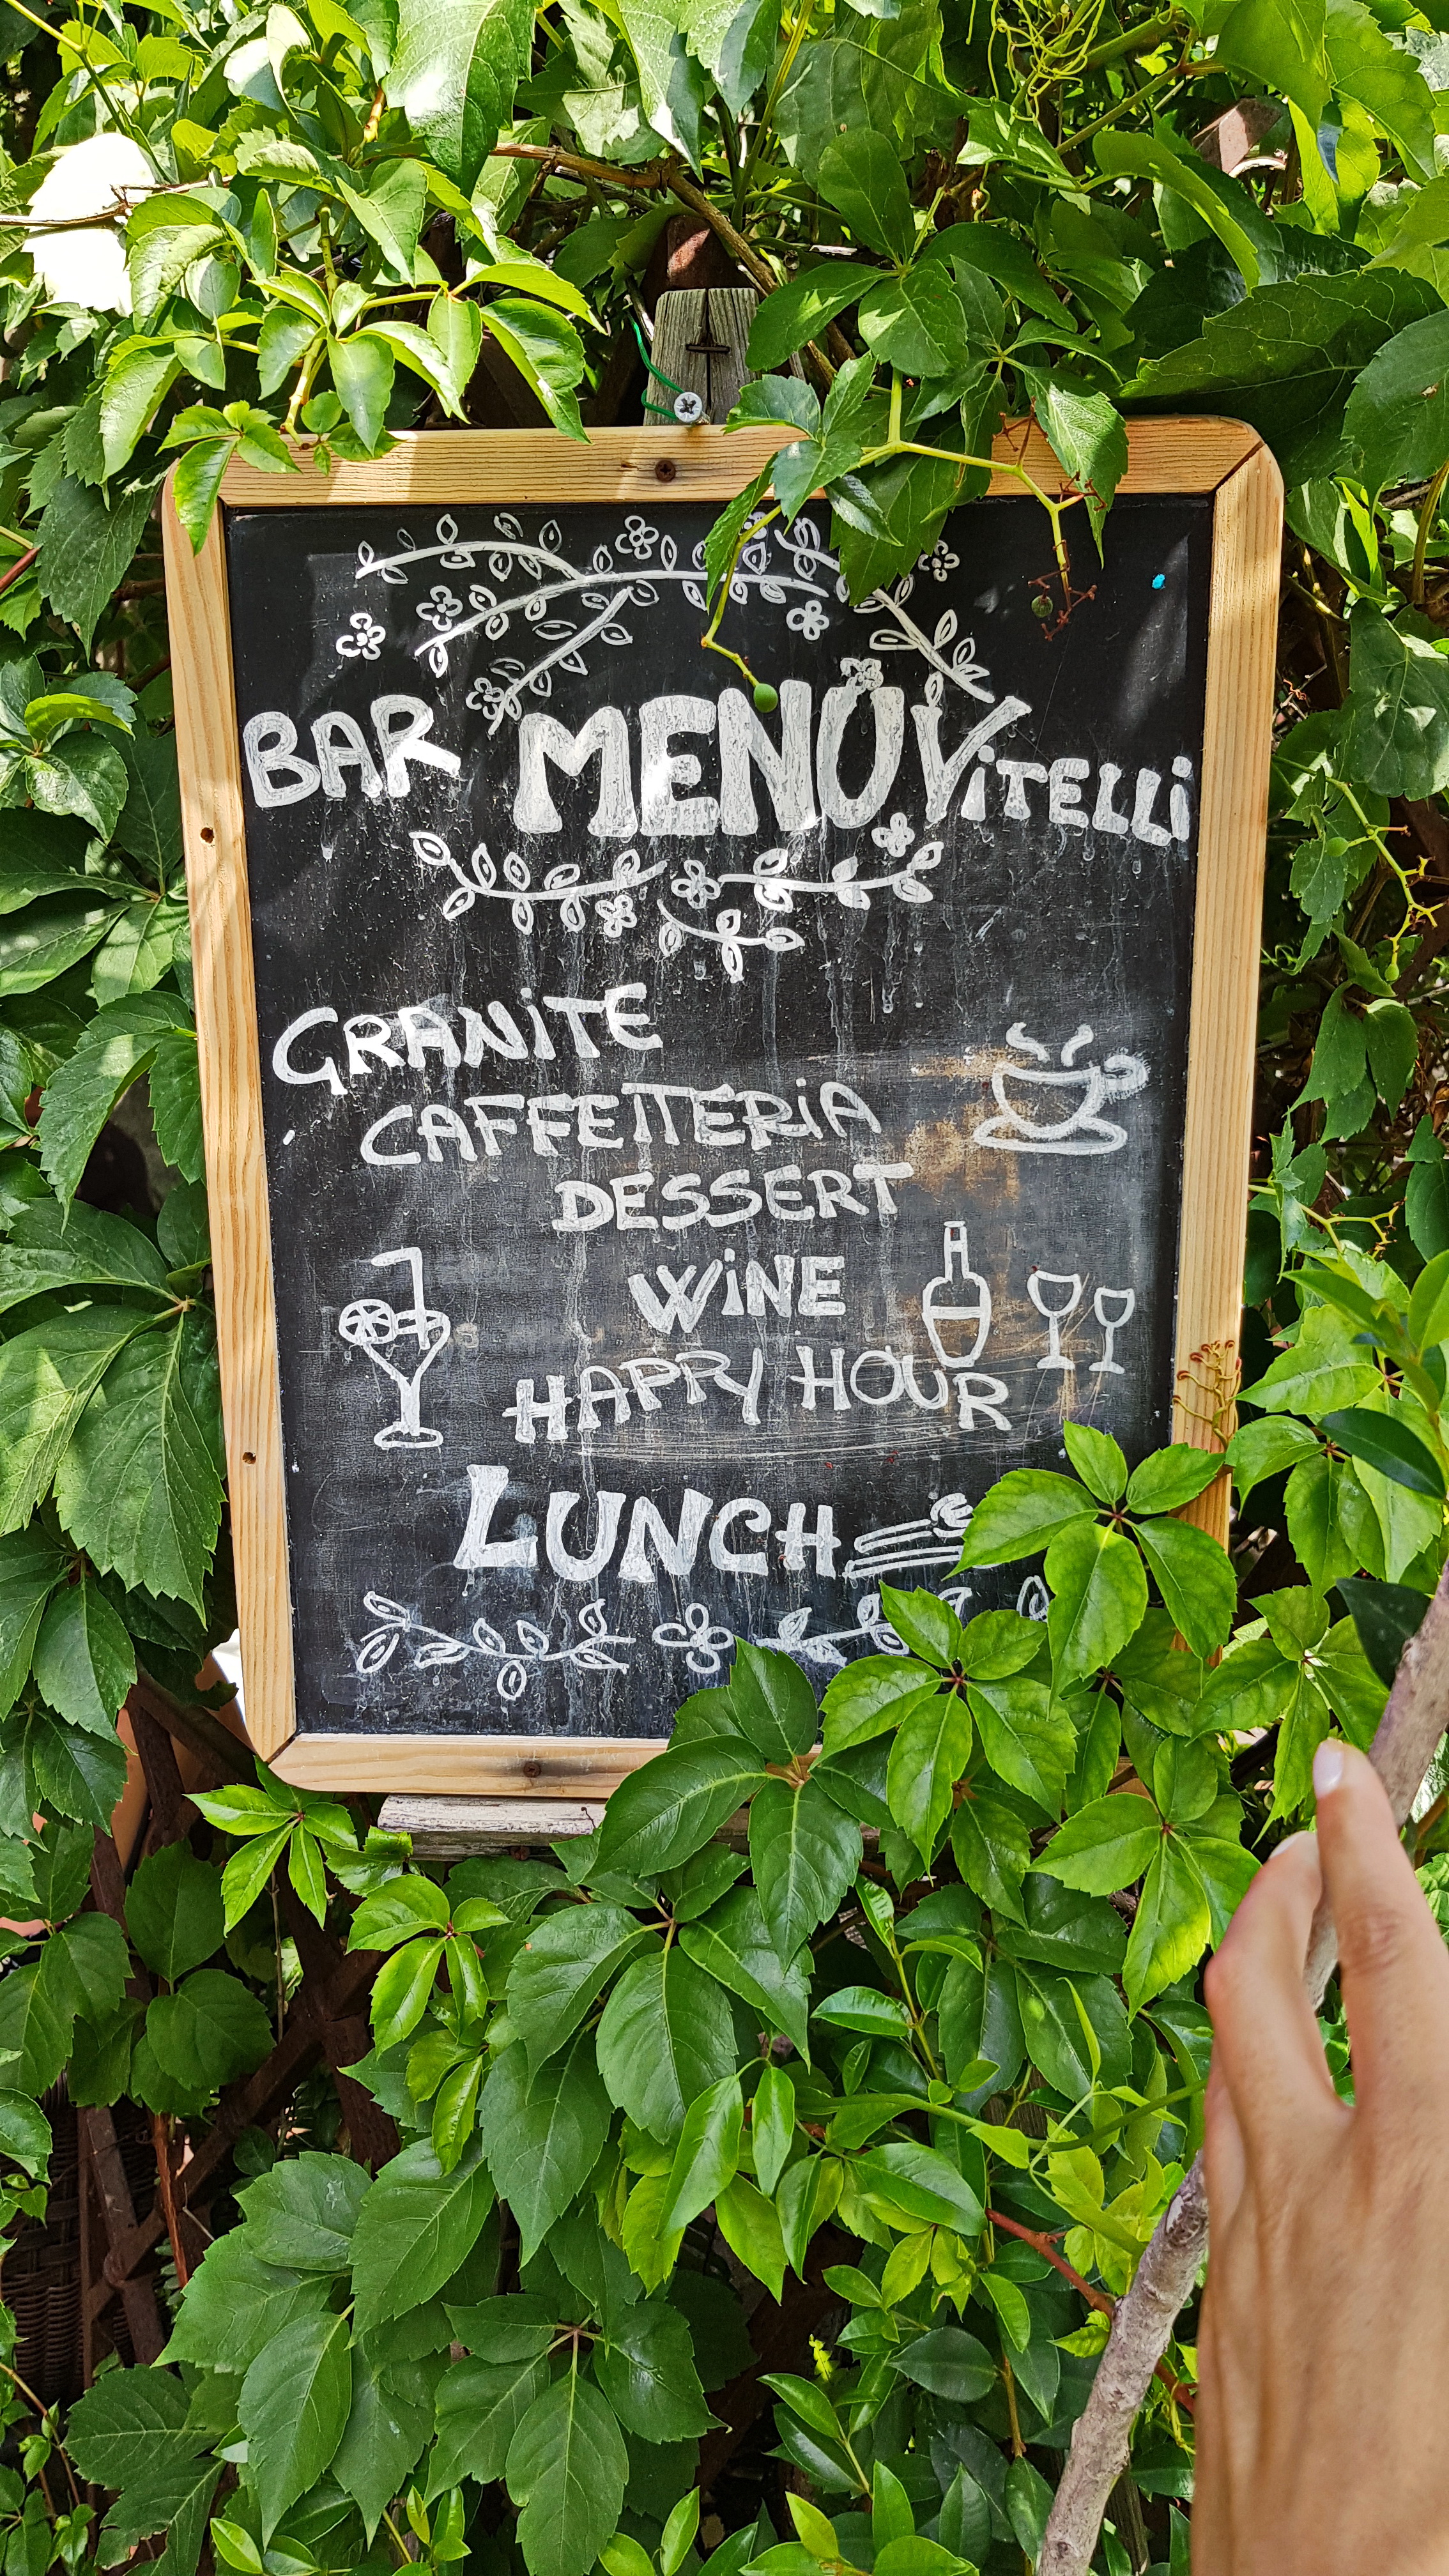 BAR MENÙ ViTELLi
GRANiTE
CAFFETTERiA
DESSERT
WiNE
HAPPY HOUR
LUNCH